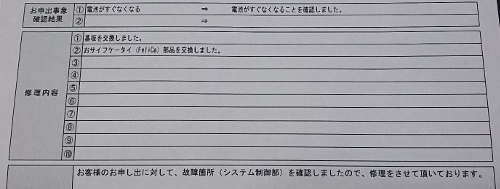 お申出事象
確認結果
① 電池がすぐなくなる ⇒ 電池がすぐなくなることを確認しました。
② ⇒
修理内容
① 基板を交換しました。
② おサイフケータイ（FeliCa）部品を交換しました。
③
④
⑤
⑥
⑦
⑧
⑨
⑩
お客様のお申し出に対して、故障箇所（システム制御部）を確認しましたので、修理をさせて頂いております。